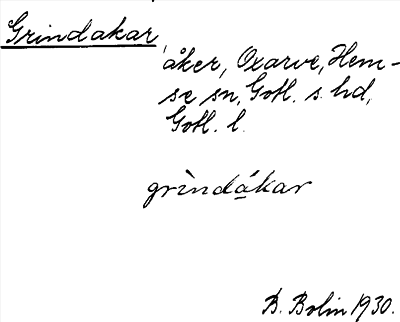 Grindakar,
åker, Oxarve, Hem-
se sn, Gotl. s. hd,
Gotl. l.
grìndá̱kar
B. Bolin 1930.